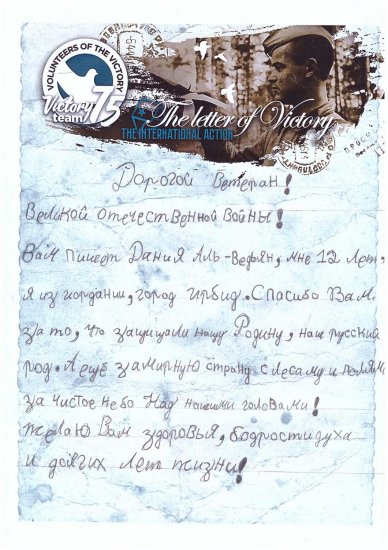 VOLUNTEERS OF THE VICTORY
Victory 75
team
The letter of Victory
THE INTERNATIONAL ACTION
Дорогой Ветеран!
Великой отечественной войны!
Вам пишет Дания Аль-Ведьян, мне 12 лет,
я из иордании, город ирбид. Спасибо Вам.
за то, что защищали нашу Родину, наш русский
род. А ещё за мирную страну с лесами и полями
за чистое небо Над нашими головами!
желаю Вам здоровья, бодрости духа
и долгих лет жизни!